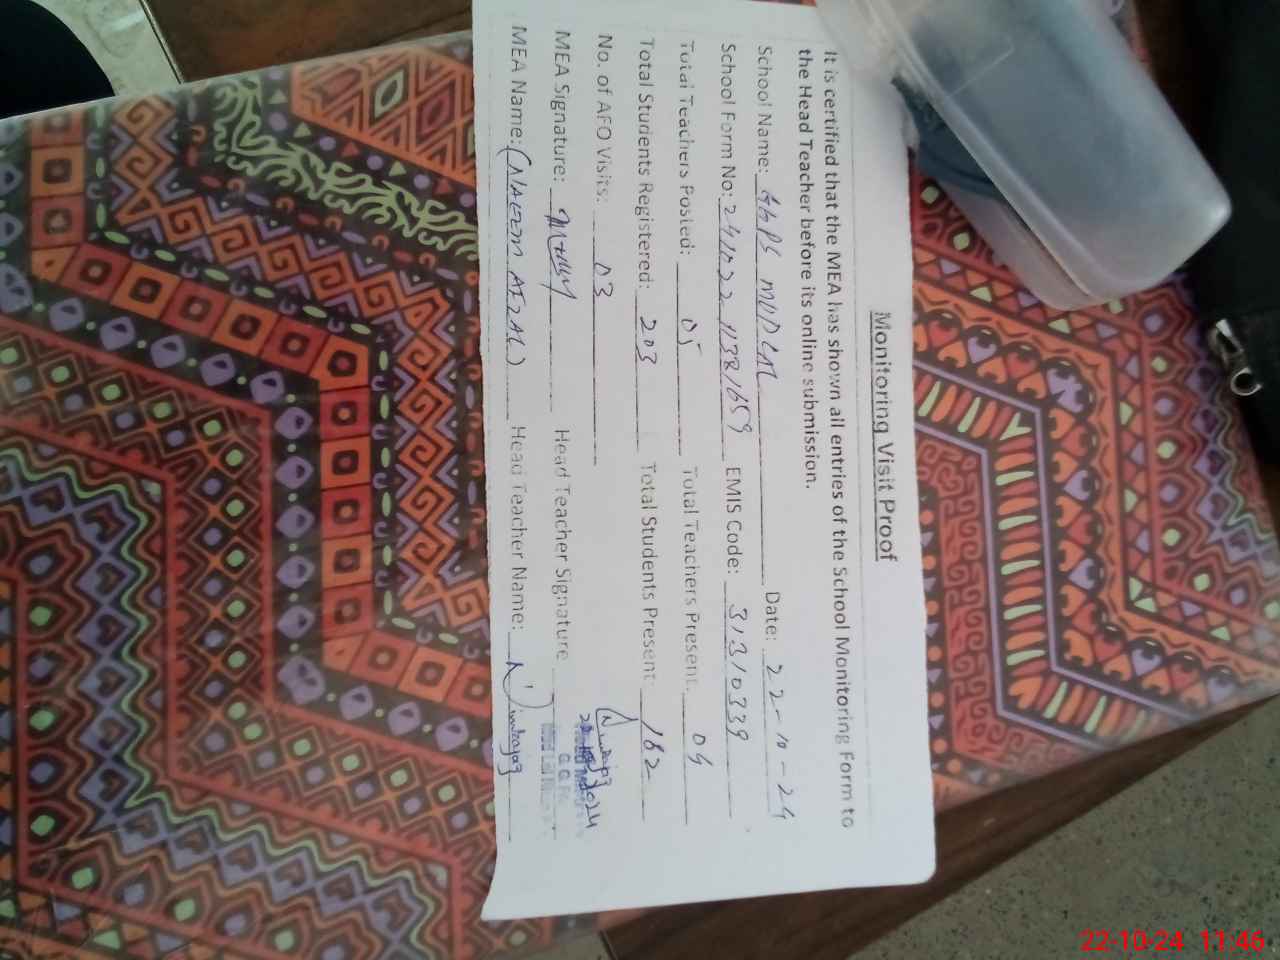 Monitoring Visit Proof
It is certified that the MEA has shown all entries of the School Monitoring Form to
the Head Teacher before its online submission.
School Name: GGPS Date: 22-10-24
School Form No: EMIS Code: 31310339
Total Teachers Posted: 05 Total Teachers Present: 04
Total Students Registered: 203 Total Students Present: 182
No. of AFO Visits: 03
MEA Signature: Head Teacher Signature
MEA Name: (NAEEM AFZAL) Head Teacher Name:
22-10-24 11:46